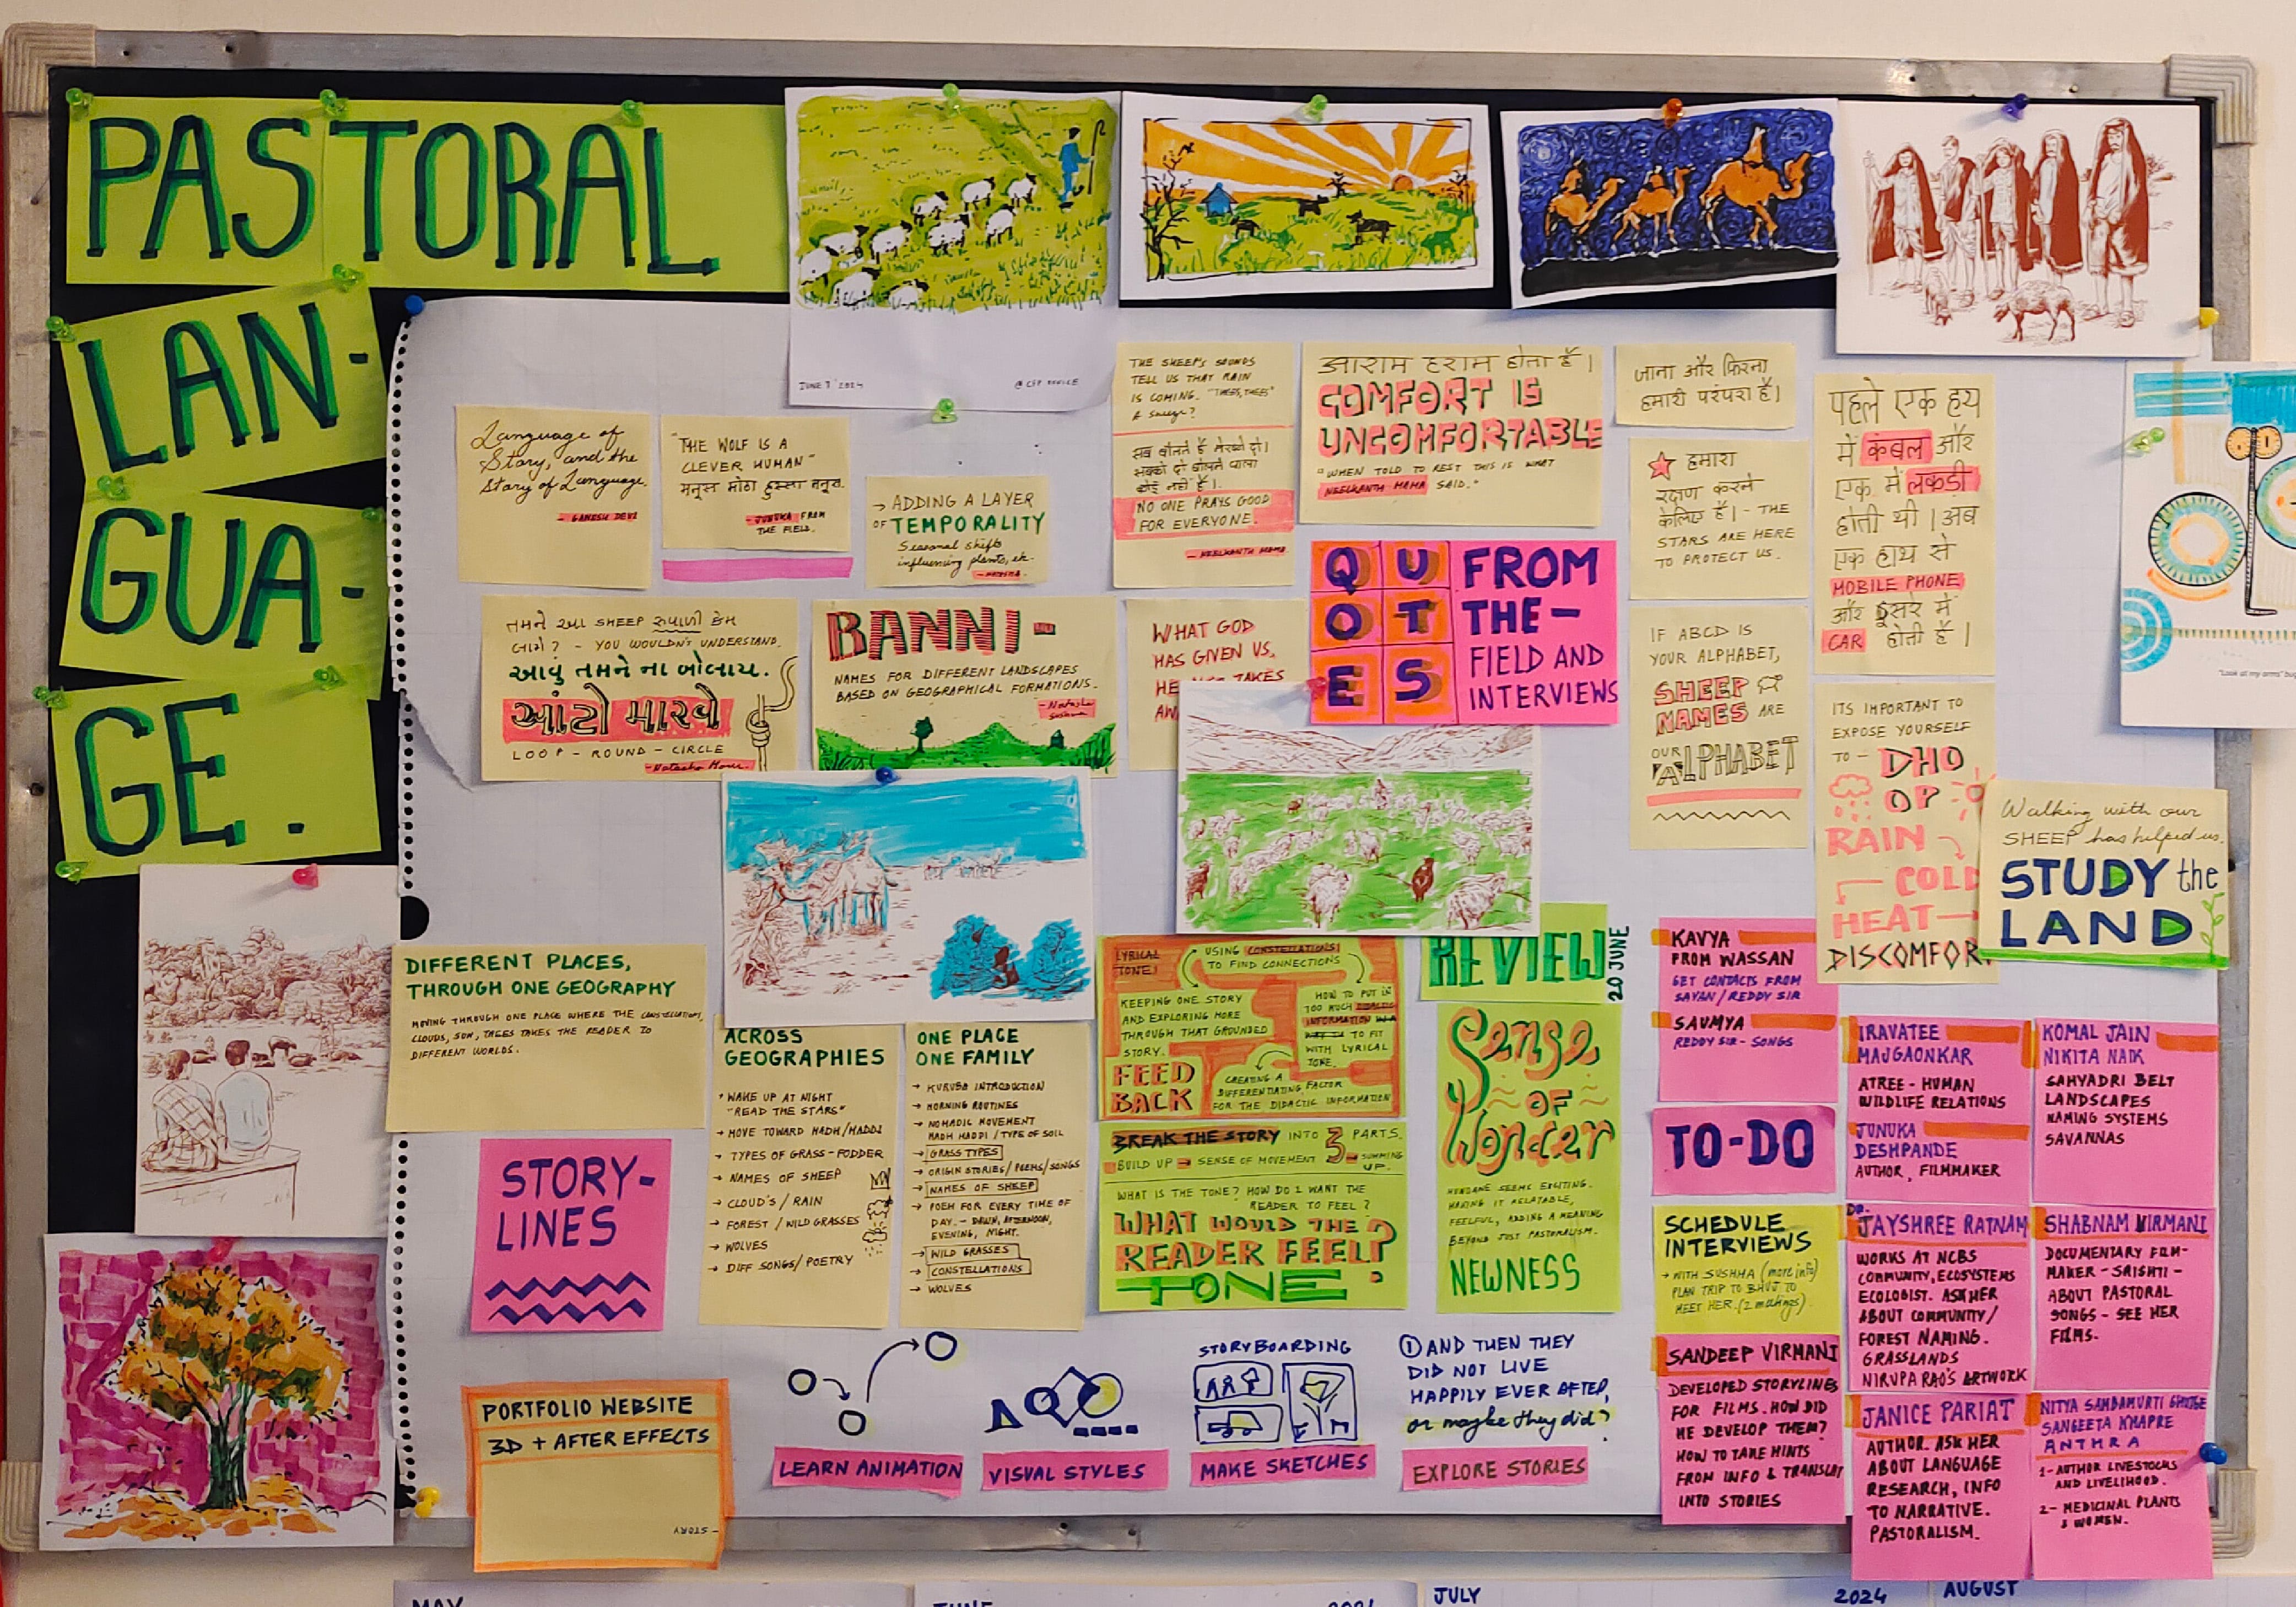 PASTORAL
LAN-
GUA-
GE.
JUNE 7 2024
Language of
Story, and the
Story of Language.
- GANESH DEVI
"THE WOLF IS A
CLEVER HUMAN"
- JUNUKA FROM
THE FIELD.
→ ADDING A LAYER
OF TEMPORALITY
Seasonal shifts
influencing plants, etc.
- NATASHA
THE SHEEP'S SOUNDS
TELL US THAT RAIN
IS COMING.
A sneeze?
NO ONE PRAYS GOOD
FOR EVERYONE.
- NEELKANTH MAMA
आराम हराम होता है।
COMFORT IS
UNCOMFORTABLE
"WHEN TOLD TO REST THIS IS WHAT
NEELKANTH MAMA SAID."
जाना और फिरना
हमारी परंपरा है।
हमारा
रक्षण करने
केलिए है। - THE
STARS ARE HERE
TO PROTECT US.
पहले एक हाथ
में कंबल और
एक में लकड़ी
होती थी। अब
एक हाथ से
MOBILE PHONE
और दूसरे में
CAR होती है।
તમને આ SHEEP રુપાળી કેમ
લાગે? - YOU WOULDN'T UNDERSTAND.
આવું તમને ના બોલાય.
આંટો મારવો
LOOP - ROUND - CIRCLE
BANNI-
NAMES FOR DIFFERENT LANDSCAPES
BASED ON GEOGRAPHICAL FORMATIONS.
- Natasha
WHAT GOD
HAS GIVEN US,
HE TAKES
QUOTES
FROM
THE-
FIELD AND
INTERVIEWS
IF ABCD IS
YOUR ALPHABET,
SHEEP
NAMES ARE
OUR
ALPHABET
ITS IMPORTANT TO
EXPOSE YOURSELF
TO - DHO
OP
RAIN
COLD
HEAT
DISCOMFOR
Walking with our
SHEEP has helped us.
STUDY the
LAND
"Look at my arms"
DIFFERENT PLACES,
THROUGH ONE GEOGRAPHY
MOVING THROUGH ONE PLACE WHERE THE CONSTELLATIONS,
CLOUDS, SUN, TREES TAKES THE READER TO
DIFFERENT WORLDS.
STORY-
LINES
ACROSS
GEOGRAPHIES
→ WAKE UP AT NIGHT
"READ THE STARS"
→ MOVE TOWARD HADH/HADDI
→ TYPES OF GRASS - FODDER
→ NAMES OF SHEEP
→ CLOUD'S / RAIN
→ FOREST / WILD GRASSES
→ WOLVES
→ DIFF SONGS/ POETRY
ONE PLACE
ONE FAMILY
→ KURUBA INTRODUCTION
→ MORNING ROUTINES
→ NOMADIC MOVEMENT
HADH HADDI / TYPE OF SOIL
→ GRASS TYPES
→ ORIGIN STORIES / POEMS/SONGS
→ NAMES OF SHEEP
→ POEM FOR EVERY TIME OF
DAY. - DAWN, AFTERNOON,
EVENING, NIGHT.
→ WILD GRASSES
→ CONSTELLATIONS
→ WOLVES
LYRICAL
TONE!
USING CONSTELLATIONS
TO FIND CONNECTIONS
KEEPING ONE STORY
AND EXPLORING MORE
THROUGH THAT GROUNDED
STORY.
HOW TO PUT IN
TOO MUCH DIDACTIC
INFORMATION
TO FIT
WITH LYRICAL
TONE.
FEED
BACK
CREATING A
DIFFERENTIATING FACTOR
FOR THE DIDACTIC INFORMATION
BREAK THE STORY INTO 3 PARTS.
BUILD UP → SENSE OF MOVEMENT → SUMMING
UP.
WHAT IS THE TONE? HOW DO I WANT THE
READER TO FEEL?
WHAT WOULD THE
READER FEEL?
TONE
REVIEW
20 JUNE
Sense
OF
Wonder
MUNDANE SEEMS EXCITING.
MAKING IT RELATABLE,
FEELFUL, ADDING A MEANING
BEYOND JUST PASTORALISM.
NEWNESS
KAVYA
FROM WASSAN
GET CONTACTS FROM
SAYAN / REDDY SIR
SAUMYA
REDDY SIR - SONGS
TO-DO
SCHEDULE
INTERVIEWS
→ WITH SUSHMA (more info)
PLAN TRIP TO BHUJ TO
MEET HER. (2 meetings)
SANDEEP VIRMANI
DEVELOPED STORYLINES
FOR FILMS. HOW DID
HE DEVELOP THEM?
HOW TO TAKE HINTS
FROM INFO & TRANSLAT
INTO STORIES
IRAVATEE
MAJGAONKAR
ATREE - HUMAN
WILDLIFE RELATIONS
JUNUKA
DESHPANDE
AUTHOR, FILMMAKER
KOMAL JAIN
NIKITA NAIK
SAHYADRI BELT
LANDSCAPES
NAMING SYSTEMS
SAVANNAS
DR.
JAYSHREE RATNAM
WORKS AT NCBS
COMMUNITY, ECOSYSTEMS
ECOLOGIST. ASK HER
ABOUT COMMUNITY/
FOREST NAMING.
GRASSLANDS
NIRUPA RAO'S ARTWORK
SHABNAM VIRMANI
DOCUMENTARY FILM-
MAKER - SRISHTI -
ABOUT PASTORAL
SONGS - SEE HER
FILMS.
JANICE PARIAT
AUTHOR. ASK HER
ABOUT LANGUAGE
RESEARCH, INFO
TO NARRATIVE.
PASTORALISM.
NITYA SAMBAMURTI GHOTGE
SANGEETA KHAPRE
ANTHRA
1- AUTHOR LIVESTOCKS
AND LIVELIHOOD.
2- MEDICINAL PLANTS
& WOMEN.
PORTFOLIO WEBSITE
3D + AFTER EFFECTS
- STORY
LEARN ANIMATION
VISUAL STYLES
STORYBOARDING
MAKE SKETCHES
① AND THEN THEY
DID NOT LIVE
HAPPILY EVER AFTER,
or maybe they did?
EXPLORE STORIES
MAY
JUNE
2024
JULY
2024
AUGUST